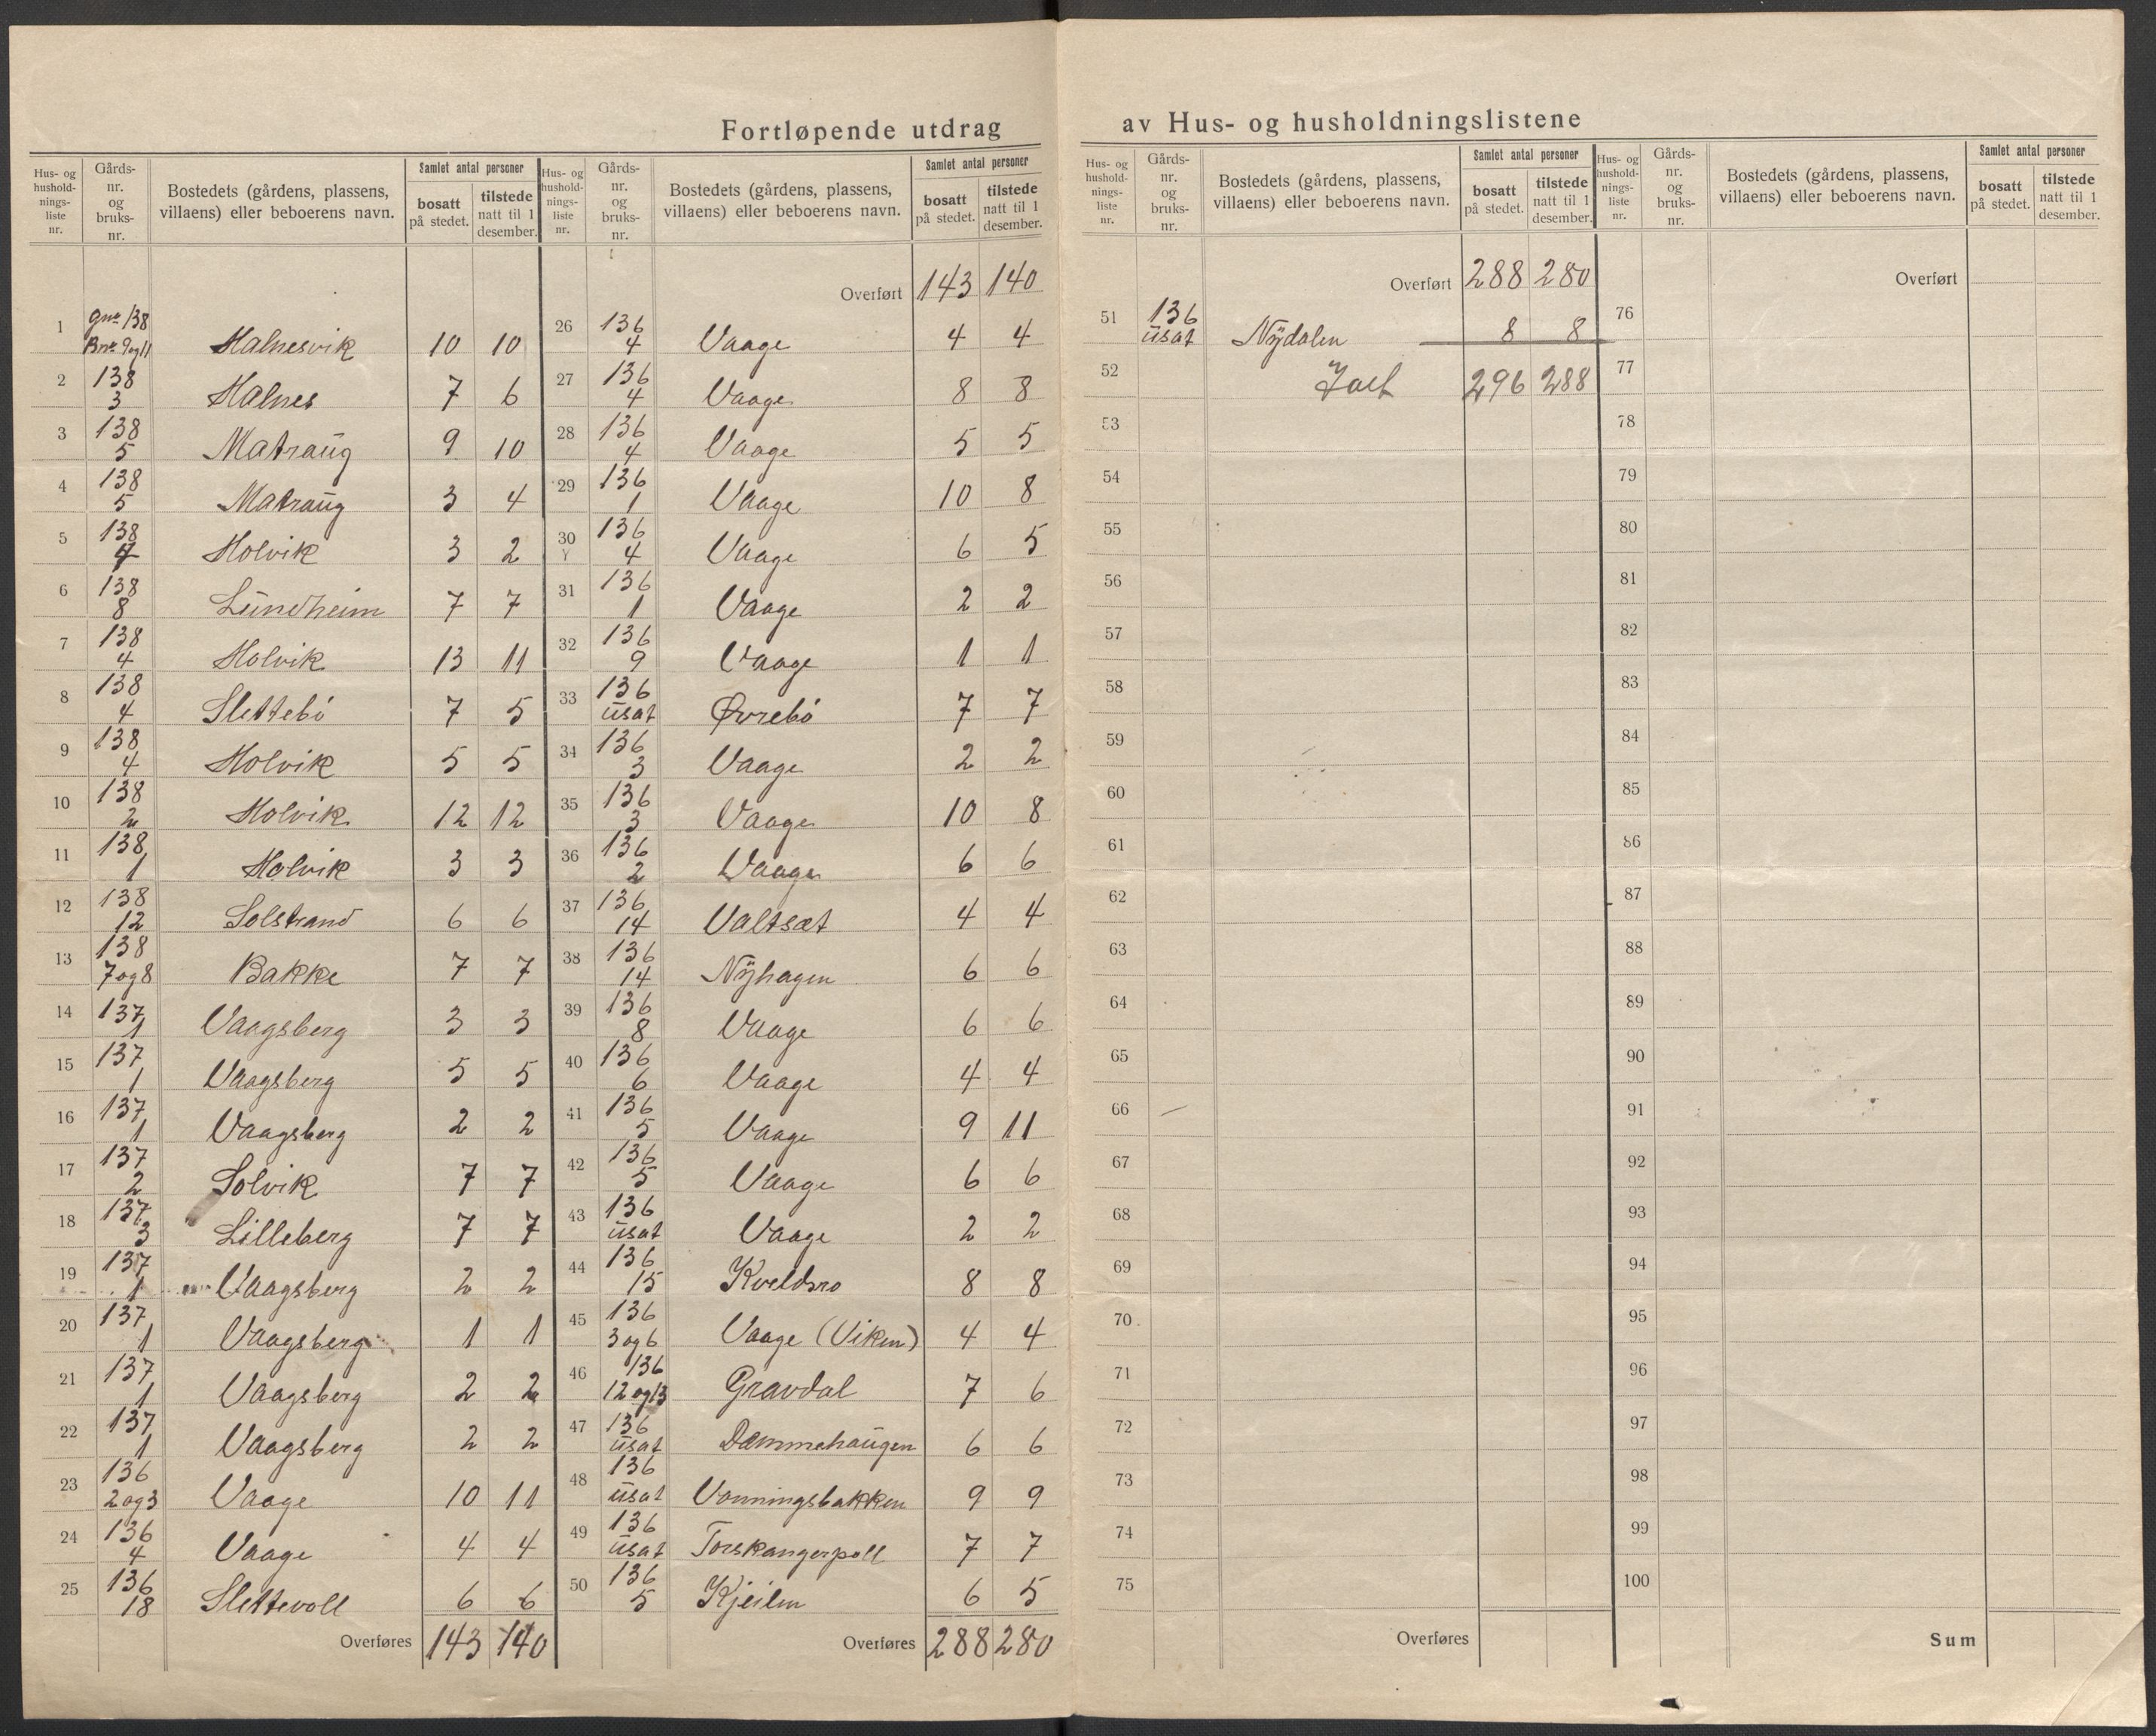 Fortløpende utdrag av Hus- og husholdningslistene
Hus- og hushold-nings-liste nr. | Gårds-nr. og bruks-nr. | Bostedets (gårdens, plassens, villaens) eller beboerens navn. | Samlet antal personer | bosatt på stedet. | tilstede natt til 1 desember.
1 | gnr 138 Bnr 9og11 | Halnesvik | 10 | 10
2 | 138 3 | Halnes | 7 | 6
3 | 138 5 | Matraug | 9 | 10
4 | 138 5 | Matraug | 3 | 4
5 | 138 4 | Holvik | 3 | 2
6 | 138 8 | Lundheim | 7 | 7
7 | 138 4 | Holvik | 13 | 11
8 | 138 4 | Slettebö | 7 | 5
9 | 138 4 | Holvik | 5 | 5
10 | 138 2 | Holvik | 12 | 12
11 | 138 1 | Holvik | 3 | 3
12 | 138 12 | Solstrand | 6 | 6
13 | 138 7og8 | Bakke | 7 | 7
14 | 137 1 | Vaagsberg | 3 | 3
15 | 137 1 | Vaagsberg | 5 | 5
16 | 137 1 | Vaagsberg | 2 | 2
17 | 137 2 | Solvik | 7 | 7
18 | 137 3 | Lilleberg | 7 | 7
19 | 137 1 | Vaagsberg | 2 | 2
20 | 137 1 | Vaagsberg | 1 | 1
21 | 137 1 | Vaagsberg | 2 | 2
22 | 137 1 | Vaagsberg | 2 | 2
23 | 136 2og3 | Vaage | 10 | 11
24 | 136 4 | Vaage | 4 | 4
25 | 136 18 | Slettevoll | 6 | 6
Overføres | 143 | 140
Hus- og hushold-nings-liste nr. | Gårds-nr. og bruks-nr. | Bostedets (gårdens, plassens, villaens) eller beboerens navn. | Samlet antal personer | bosatt på stedet. | tilstede natt til 1 desember.
Overført | 143 | 140
26 | 136 4 | Vaage | 4 | 4
27 | 136 4 | Vaage | 8 | 8
28 | 136 4 | Vaage | 5 | 5
29 | 136 1 | Vaage | 10 | 8
30 | 136 4 | Vaage | 6 | 5
31 | 136 1 | Vaage | 2 | 2
32 | 136 9 | Vaage | 1 | 1
33 | 136 usat | Øvrebö | 7 | 7
34 | 136 3 | Vaage | 2 | 2
35 | 136 3 | Vaage | 10 | 8
36 | 136 2 | Vaage | 6 | 6
37 | 136 14 | Valtsæt | 4 | 4
38 | 136 14 | Nyhagen | 6 | 6
39 | 136 8 | Vaage | 6 | 6
40 | 136 6 | Vaage | 4 | 4
41 | 136 5 | Vaage | 9 | 11
42 | 136 5 | Vaage | 6 | 6
43 | 136 usat | Vaage | 2 | 2
44 | 136 15 | Kveldsro | 8 | 8
45 | 136 3og6 | Vaage (Viken) | 4 | 4
46 | 136 12og13 | Gravdal | 7 | 6
47 | 136 usat | Dammehaugen | 6 | 6
48 | 136 usat | Vonningsbakken | 9 | 9
49 | 136 usat | Torskangerpoll | 7 | 7
50 | 136 5 | Kjeilen | 6 | 5
Overføres | 288 | 280
Hus- og hushold-nings-liste nr. | Gårds-nr. og bruks-nr. | Bostedets (gårdens, plassens, villaens) eller beboerens navn. | Samlet antal personer | bosatt på stedet. | tilstede natt til 1 desember.
Overført | 288 | 280
51 | 136 usat | Nydalen | 8 | 8
52 | Ialt | 296 | 288
53
54
55
56
57
58
59
60
61
62
63
64
65
66
67
68
69
70
71
72
73
74
75
Overføres
Hus- og hushold-nings-liste nr. | Gårds-nr. og bruks-nr. | Bostedets (gårdens, plassens, villaens) eller beboerens navn. | Samlet antal personer | bosatt på stedet. | tilstede natt til 1 desember.
Overført
76
77
78
79
80
81
82
83
84
85
86
87
88
89
90
91
92
93
94
95
96
97
98
99
100
Sum